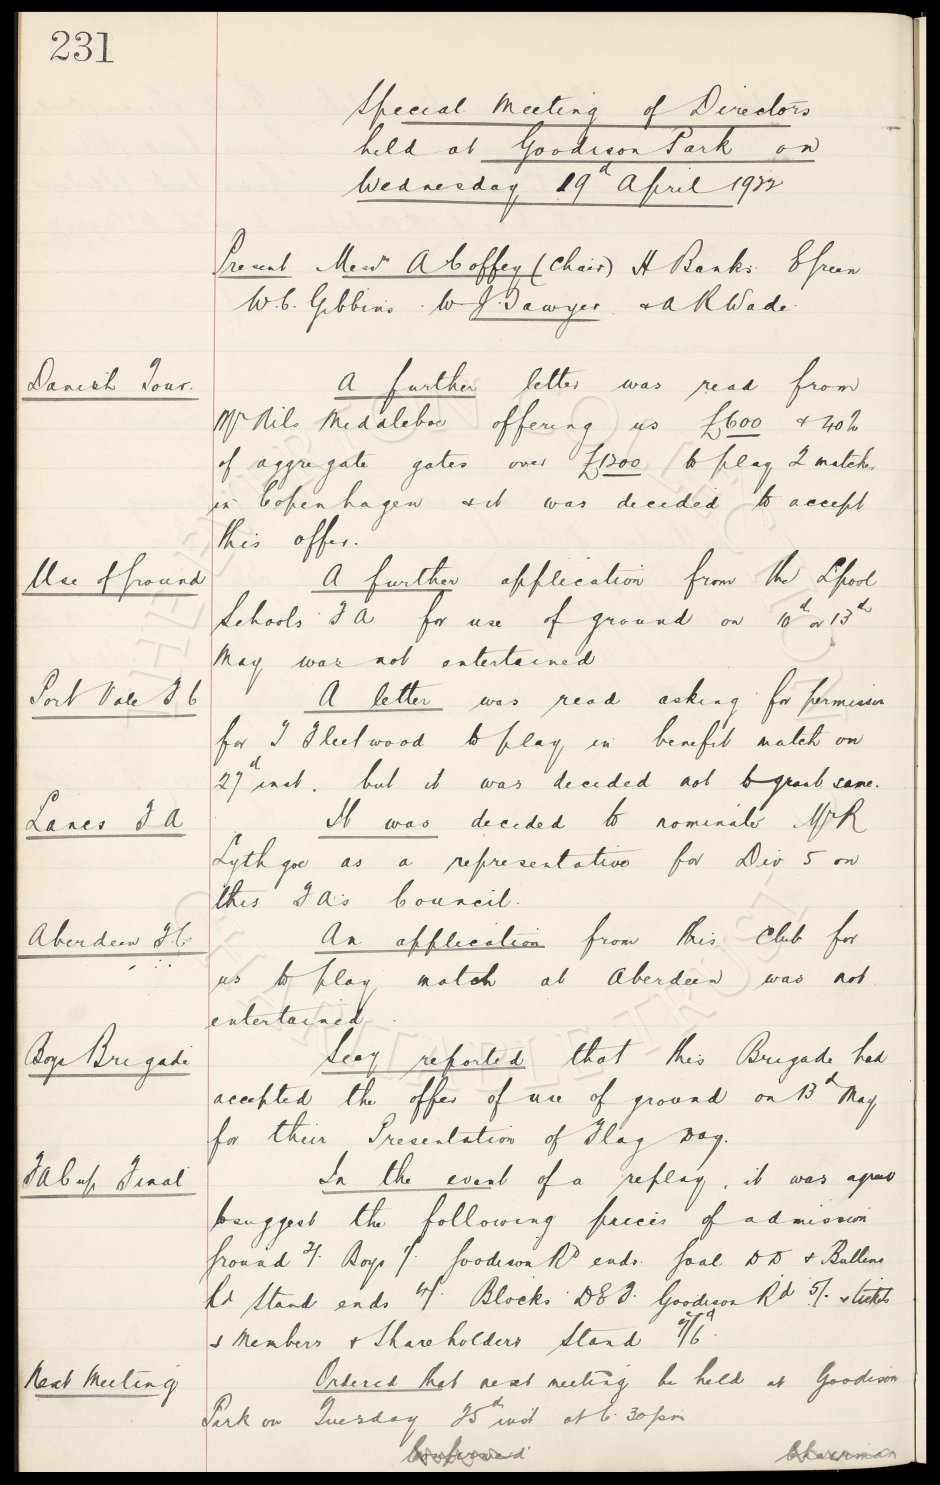 231
Special Meeting of Directors
held at Goodison Park on
Wednesday 19th April 1922
Present Messrs A Coffey (Chair) H Banks E Green
W.C. Gibbins W J Sawyer & A R Wade.
Danish Tour.
A further letter was read from
Mr Nils Middleboe offering us £600 & 40%
of aggregate gates over £1200 to play 2 matches
in Copenhagen & it was decided to accept
this offer.
Use of Ground
A further application from the L'pool
Schools F A for use of ground on 10th or 13th
May was not entertained
Port Vale F C
A letter was read asking for permission
for T Fleetwood to play in benefit match on
27th inst. but it was decided not to grant same.
Lancs F A
It was decided to nominate Mr R
Lythgoe as a representative for Div 5 on
this F A's Council.
Aberdeen F C.
An application from this Club for
us to play match at Aberdeen was not
entertained.
Boys Brigade
Secy reported that this Brigade had
accepted the offer of use of ground on 13th May
for their Presentation of Flag Day.
F A Cup Final
In the event of a replay, it was agreed
to suggest the following prices of admission
Ground 2/- Boys 1/- Goodison Rd ends. Goal D D. & Bullens
Rd Stand ends 4/- Blocks D E F. Goodison Rd 5/- & tickets
& Members & Shareholders Stand 7/6d.
Next Meeting
Ordered that next meeting be held at Goodison
Park on Tuesday 25th inst at 6.30pm
Confirmed
Chairman
EVERTON COLLECTION
CHARITABLE TRUST